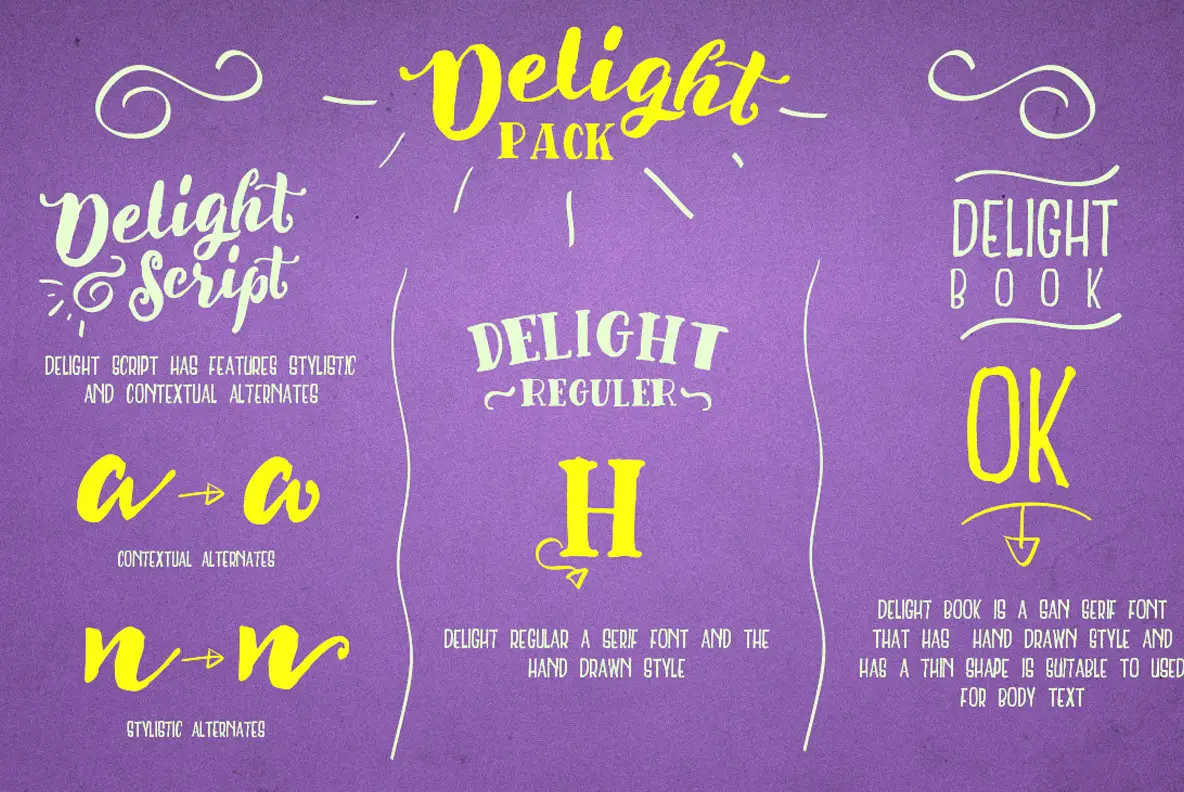 Delight
PACK
Delight
Script
DELIGHT SCRIPT HAS FEATURES STYLISTIC
AND CONTEXTUAL ALTERNATES
a → a
CONTEXTUAL ALTERNATES
n → n
STYLISTIC ALTERNATES
DELIGHT
REGULER
H
DELIGHT REGULAR A SERIF FONT AND THE
HAND DRAWN STYLE
DELIGHT
BOOK
OK
DELIGHT BOOK IS A SAN SERIF FONT
THAT HAS HAND DRAWN STYLE AND
HAS A THIN SHAPE IS SUITABLE TO USED
FOR BODY TEXT